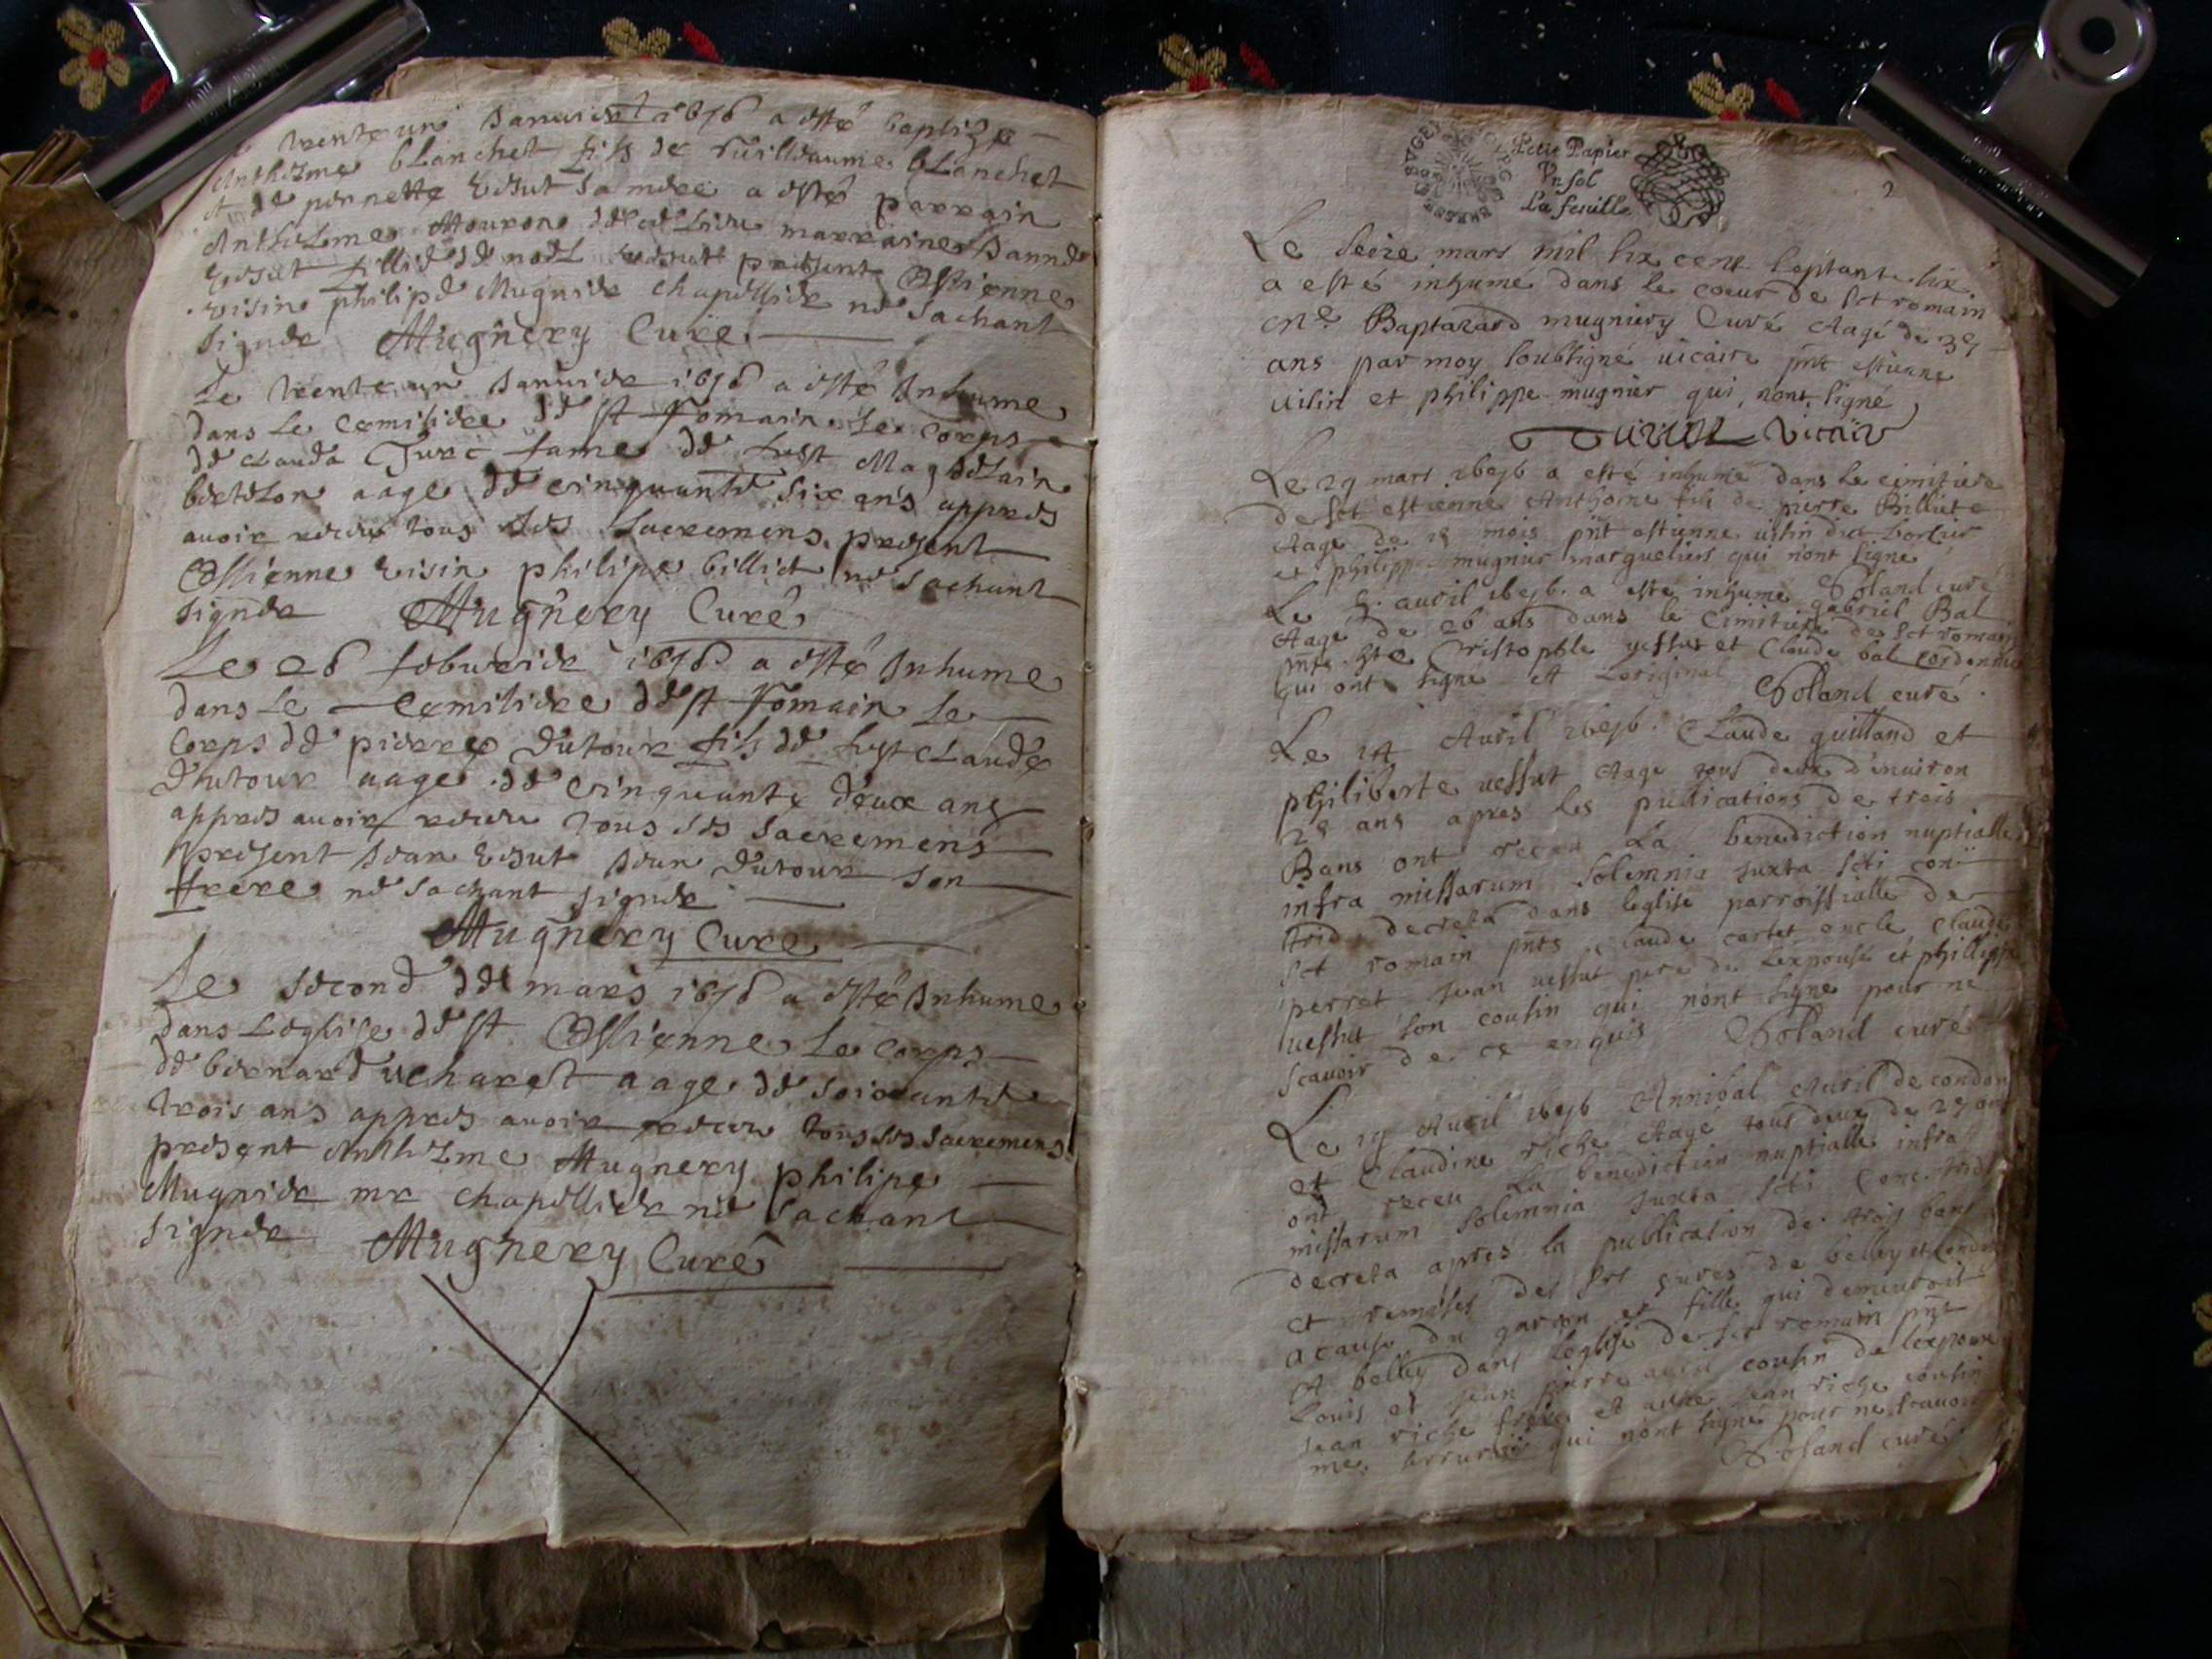 trente un Januier 1676 a esté baptize
Anthelme blanchet fils de Guillaume blanchet
et de pernette vesut sa mere a esté parrain
Anthelme Mouron marraine Janne
vesut fille de noel vesut present Estienne
visin philipe Mugnier chapellier ne sachant
signer Mugnery Curé
Le trente un Januier 1676 a esté Inhume
dans Le Cemitiere de st Romain Le corps
de clauda Jure fame de fust Magdelain
aage de cinquante six ans appres
auoir receu tous ses sacremens present
Estienne visin philipe billiet ne sachant
signer Mugnery Curé
Le 26 februier 1676 a esté Inhume
dans Le Cemitiere de st Romain Le
Corps de pierre dutour fils de fust claude
dutour aage de cinquante deux ans
appres auoir receu tous ses sacremens
present Jean vesut Jean dutour son
frere ne sachant signer
Mugnery Cure
Le second de mars 1676 a esté Inhume
dans L'eglise de st Estienne Le corps
de bernard ucharest aage de soixante
trois ans appres auoir receu tous ses sacremens
present Anthelme Mugnery philipe
Mugnier mr chapellier ne sachant
signer Mugnery Curé
Petit Papier
Vn sol
La feuille
2
Le seize mars mil six cent septante six
a esté inhumé dans le coeur de sct romain
Baptazard mugniery Curé Aagé de 37
ans par moy soubsigné uicaire pnt estienne
uisin et philippe mugnier qui nont signé
Vicair
Le 29 mars 1676 a esté inhumé dans le cimitiere
de sct estienne Anthoine fils de pierre Billiete
Aagé de 18 mois pnt estienne uisin dict
et philippe mugnier marguelier qui n'ont signé
Roland curé
Le 8. auril 1676. a este inhumé gabriel Bal
Aagé de 26 ans dans le Cimitiere de sct romain
Cristophle uessut et Claude bal cordonnier
qui ont signé A Loriginal Roland curé
Le 14 Auril 1676. Claude guilland et
philiberte uessut Aage tous deux d'enuiron
28 ans apres les publications de trois
Bans ont receu La benediction nuptialle
infra missarum solemnia juxta scti con
trid. decreta dans leglise parroissialle de
sct romain pnts claude cartet oncle claude
perret Jean uessut pere de L'expouse et philippe
uessut son cousin qui n'ont signe pour ne
scauoir de ce enquis Roland curé
Le 19 Auril 1676 Annibal Auril de condon
et Claudine riche Aagé tous deux de 27 ans
ont receu La benediction nuptialle infra
missarum solemnia juxta scti Conc. trid.
decreta apres la publication de trois bans
et remises des srs curés de belley et condon
a cause du garcon et fille qui demeuroit
A belley dans leglise de sct romain pnt
Louis et jean pierre auril cousin de lexpoux
jean riche frere et autre jean riche cousin
me serrurier qui n'ont signé pour ne scauoir
Roland curé